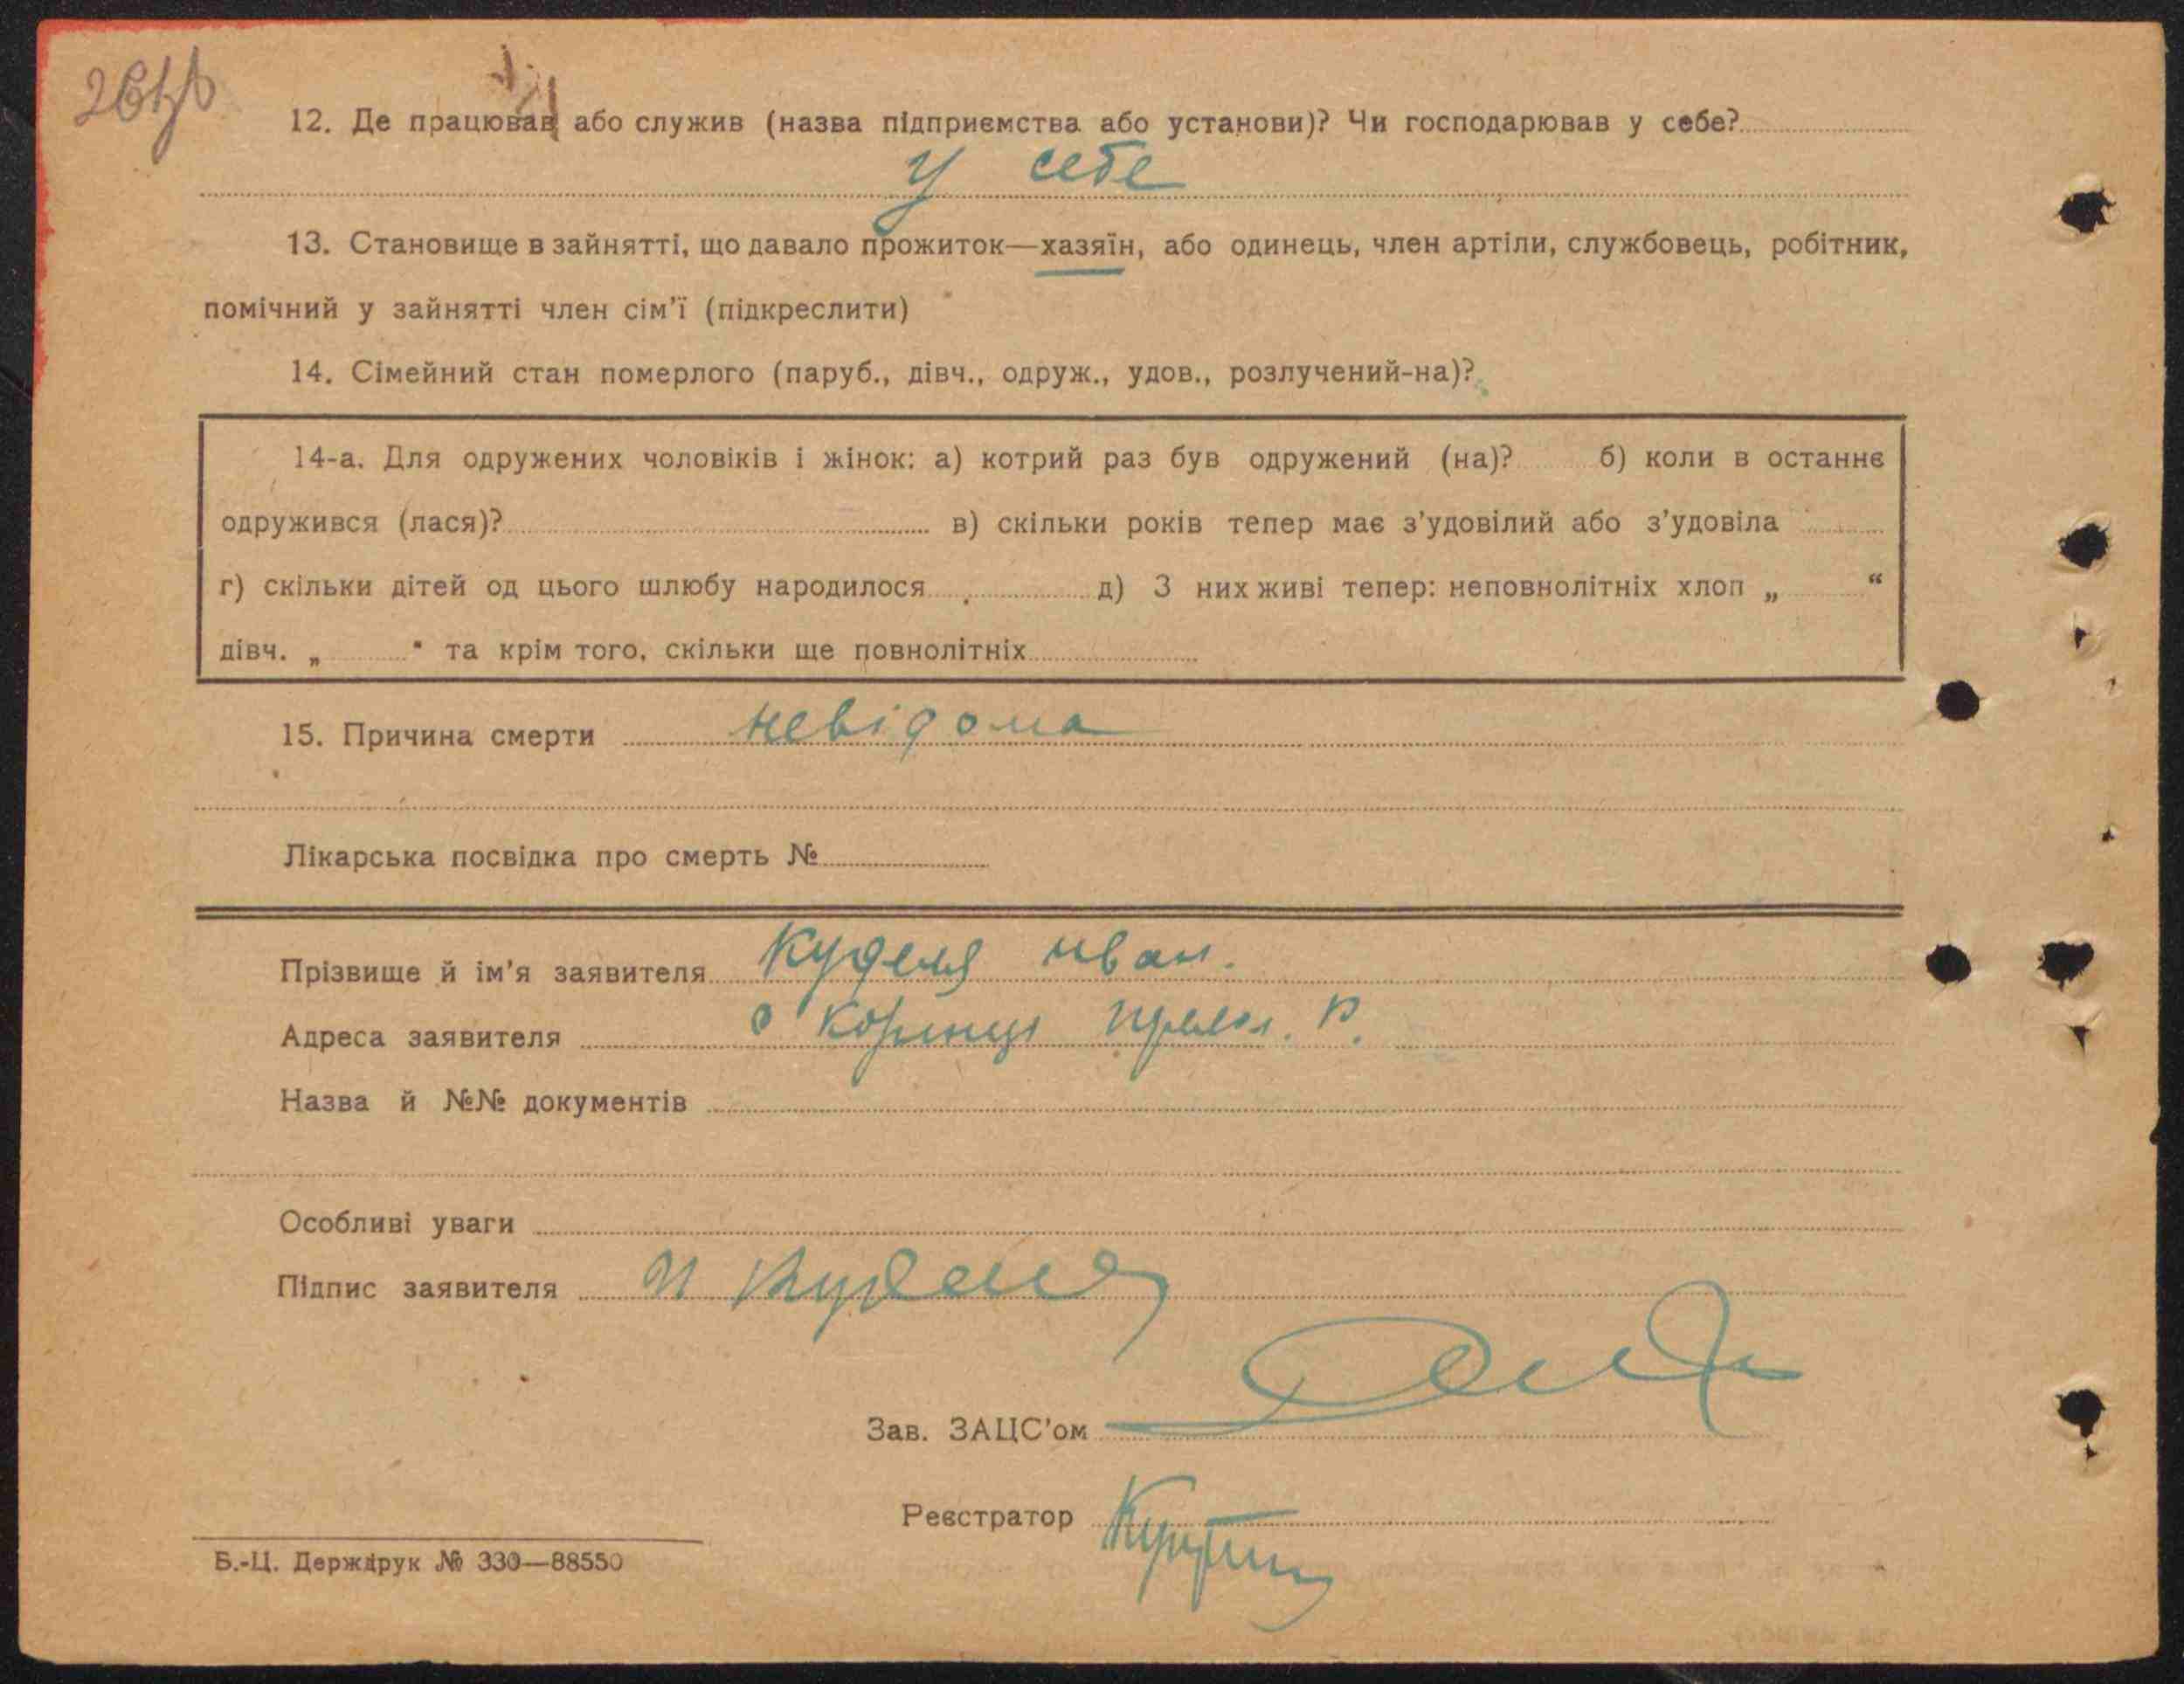 12. Де працював або служив (назва підприємства або установи)? Чи господарював у себе?
у себе
13. Становище в зайнятті, що давало прожиток—хазяїн, або одинець, член артіли, службовець, робітник,
помічний у зайнятті член сім'ї (підкреслити)
14. Сімейний стан померлого (паруб., дівч., одруж., удов., розлучений-на)?
14-а. Для одружених чоловіків і жінок: а) котрий раз був одружений (на)? б) коли в останнє
одружився (лася)? в) скільки років тепер має з'удовілий або з'удовіла
г) скільки дітей од цього шлюбу народилося д) З них живі тепер: неповнолітніх хлоп „ “
дівч. „ " та крім того, скільки ще повнолітніх
15. Причина смерти невідома
Лікарська посвідка про смерть №
Прізвище й ім'я заявителя Куделя Иван.
Адреса заявителя с Коринці Р.
Назва й №№ документів
Особливі уваги
Підпис заявителя И Куделя
Зав. ЗАЦС'ом
Реєстратор
Б.-Ц. Держдрук № 330—88550